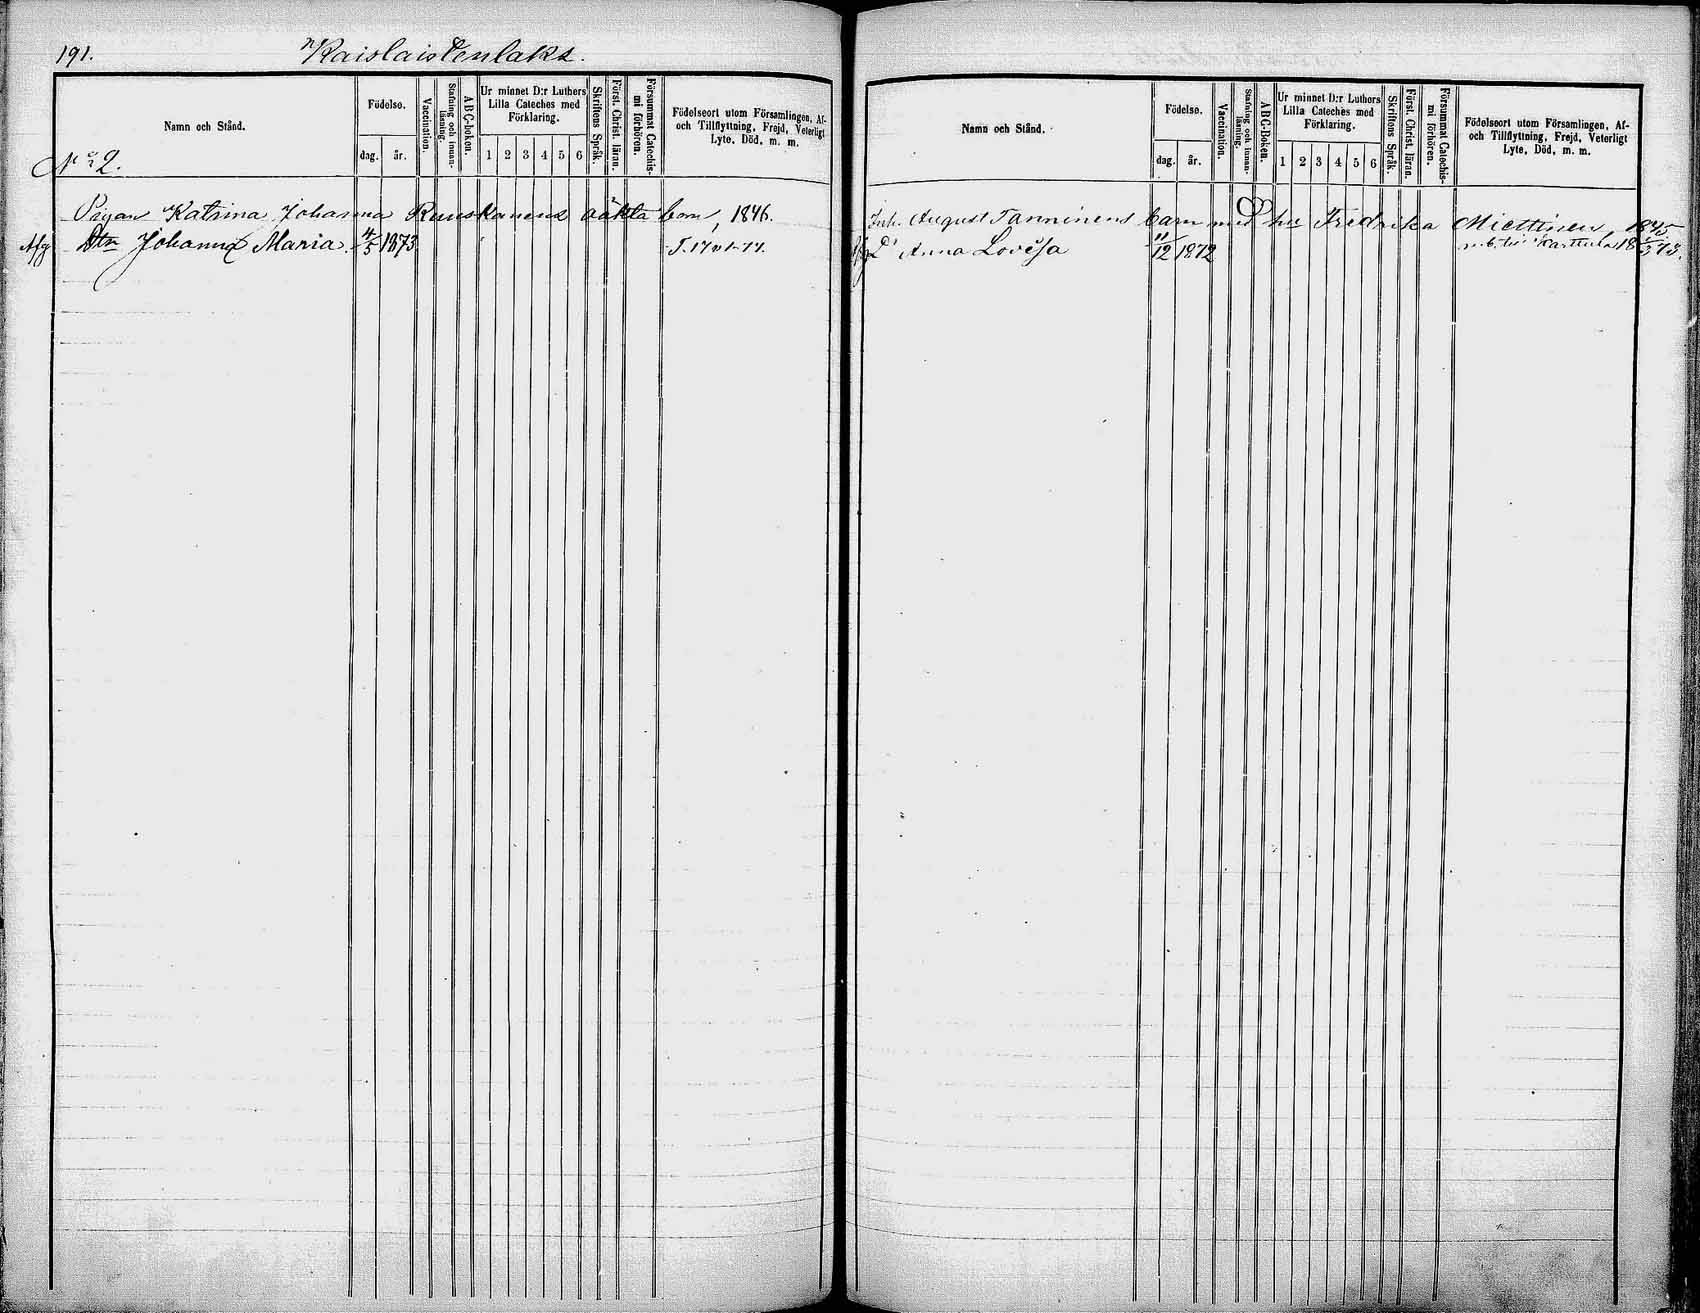 191. Kaislaistenlaks.
Namn och Stånd.
Födelse.
dag. år.
Vaccination.
Stafning och innan-läsning.
ABC-boken.
Ur minnet D:r Luthers
Lilla Cateches med
Förklaring.
1 2 3 4 5 6
Skriftens Språk.
Först. Christ. läran.
Försummat Catechis-
mi förhören.
Födelseort utom Församlingen, Af-
och Tillflyttning, Frejd, Veterligt
Lyte, Död, m. m.
No 2.
Pigan Katrina Johanna Ruuskanens oäkta barn, 1846.
Dtr Johanna Maria. 4/5 1873
Namn och Stånd.
Födelse.
dag. år.
Vaccination.
Stafning och innan-läsning.
ABC-Boken.
Ur minnet D:r Luthers
Lilla Cateches med
Förklaring.
1 2 3 4 5 6
Skriftens Språk.
Först. Christ. läran.
Försummat Catechis-
mi förhören.
Födelseort utom Församlingen, Af-
och Tillflyttning, Frejd, Veterligt
Lyte, Död, m. m.
Inh. August Tanninens barn med hu Fredrika Miettinen, 1845
D. Anna Lovisa 11/12 1872 Karttula